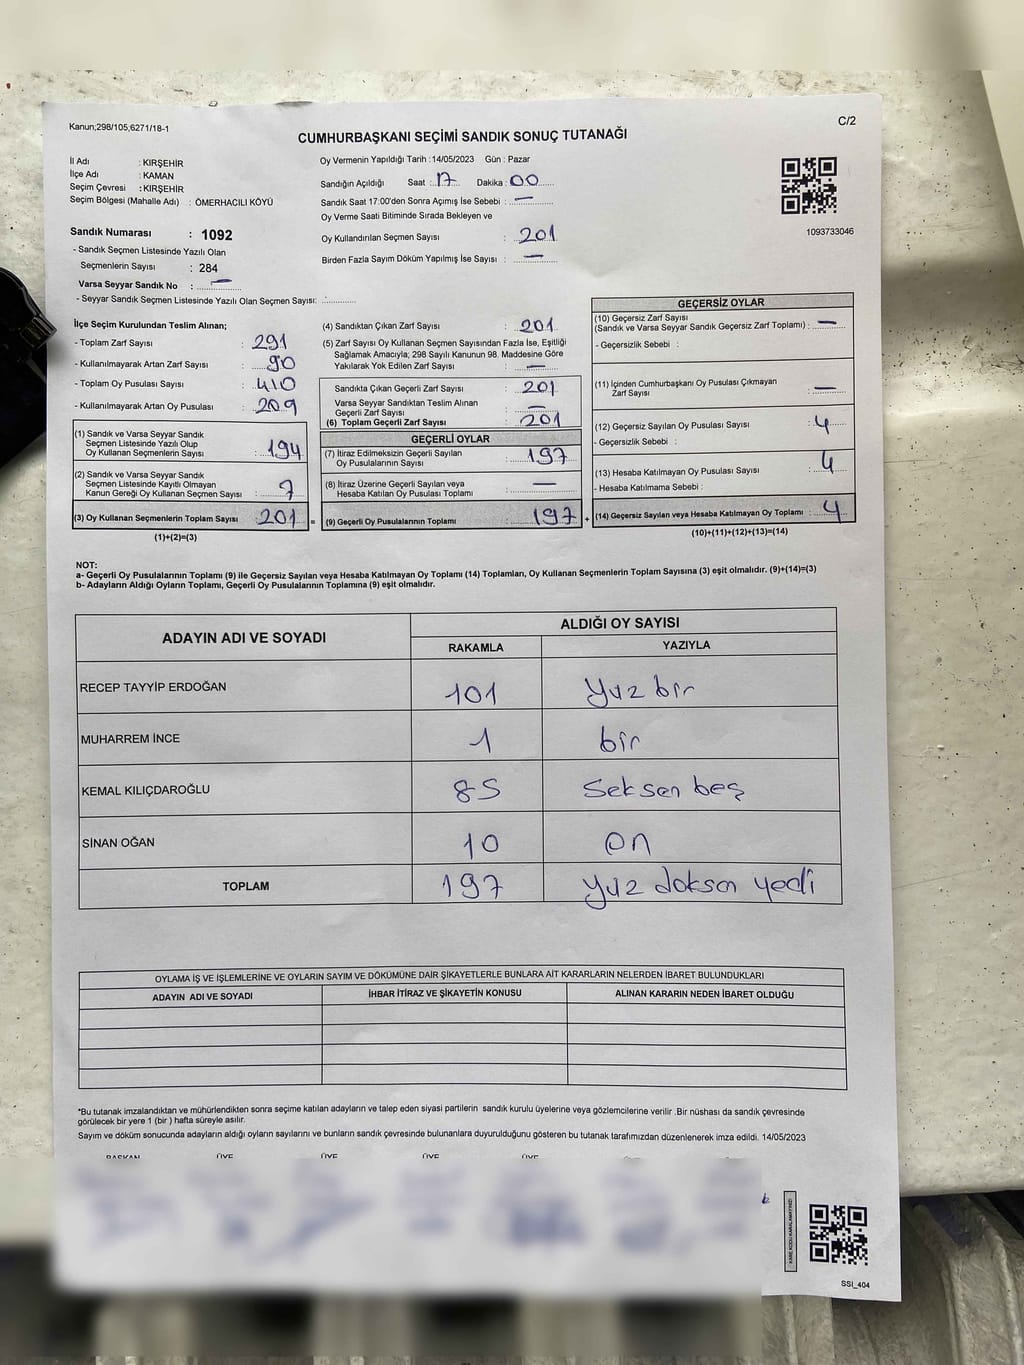 Kanun;298/105;6271/18-1
C/2
CUMHURBAŞKANI SEÇİMİ SANDIK SONUÇ TUTANAĞI
İl Adı : KIRŞEHİR
İlçe Adı : KAMAN
Seçim Çevresi : KIRŞEHİR
Seçim Bölgesi (Mahalle Adı) : ÖMERHACILI KÖYÜ
Sandık Numarası : 1092
- Sandık Seçmen Listesinde Yazılı Olan
Seçmenlerin Sayısı : 284
Varsa Seyyar Sandık No : —
- Seyyar Sandık Seçmen Listesinde Yazılı Olan Seçmen Sayısı:
Oy Vermenin Yapıldığı Tarih :14/05/2023 Gün : Pazar
Sandığın Açıldığı Saat : 17 Dakika : 00
Sandık Saat 17:00'den Sonra Açımış İse Sebebi : —
Oy Verme Saati Bitiminde Sırada Bekleyen ve
Oy Kullandırılan Seçmen Sayısı : 201
Birden Fazla Sayım Döküm Yapılmış İse Sayısı : —
1093733046
İlçe Seçim Kurulundan Teslim Alınan;
- Toplam Zarf Sayısı : 291
- Kullanılmayarak Artan Zarf Sayısı : 90
- Toplam Oy Pusulası Sayısı : 410
- Kullanılmayarak Artan Oy Pusulası : 209
(1) Sandık ve Varsa Seyyar Sandık
Seçmen Listesinde Yazılı Olup
Oy Kullanan Seçmenlerin Sayısı : 194
(2) Sandık ve Varsa Seyyar Sandık
Seçmen Listesinde Kayıtlı Olmayan
Kanun Gereği Oy Kullanan Seçmen Sayısı : 7
(3) Oy Kullanan Seçmenlerin Toplam Sayısı : 201 =
(1)+(2)=(3)
(4) Sandıktan Çıkan Zarf Sayısı : 201
(5) Zarf Sayısı Oy Kullanan Seçmen Sayısından Fazla İse, Eşitliği
Sağlamak Amacıyla; 298 Sayılı Kanunun 98. Maddesine Göre
Yakılarak Yok Edilen Zarf Sayısı : —
Sandıkta Çıkan Geçerli Zarf Sayısı : 201
Varsa Seyyar Sandıktan Teslim Alınan
Geçerli Zarf Sayısı : —
(6) Toplam Geçerli Zarf Sayısı : 201
GEÇERLİ OYLAR
(7) İtiraz Edilmeksizin Geçerli Sayılan
Oy Pusulalarının Sayısı : 197
(8) İtiraz Üzerine Geçerli Sayılan veya
Hesaba Katılan Oy Pusulası Toplamı : —
(9) Geçerli Oy Pusulalarının Toplamı : 197 +
GEÇERSİZ OYLAR
(10) Geçersiz Zarf Sayısı
(Sandık ve Varsa Seyyar Sandık Geçersiz Zarf Toplamı) : —
- Geçersizlik Sebebi :
(11) İçinden Cumhurbaşkanı Oy Pusulası Çıkmayan
Zarf Sayısı : —
(12) Geçersiz Sayılan Oy Pusulası Sayısı : 4
- Geçersizlik Sebebi :
(13) Hesaba Katılmayan Oy Pusulası Sayısı : 4
- Hesaba Katılmama Sebebi :
(14) Geçersiz Sayılan veya Hesaba Katılmayan Oy Toplamı : 4
(10)+(11)+(12)+(13)=(14)
NOT:
a- Geçerli Oy Pusulalarının Toplamı (9) ile Geçersiz Sayılan veya Hesaba Katılmayan Oy Toplamı (14) Toplamları, Oy Kullanan Seçmenlerin Toplam Sayısına (3) eşit olmalıdır. (9)+(14)=(3)
b- Adayların Aldığı Oyların Toplamı, Geçerli Oy Pusulalarının Toplamına (9) eşit olmalıdır.
ADAYIN ADI VE SOYADI ALDIĞI OY SAYISI
RAKAMLA YAZIYLA
RECEP TAYYİP ERDOĞAN 101 Yüz bir
MUHARREM İNCE 1 bir
KEMAL KILIÇDAROĞLU 85 Seksen beş
SİNAN OĞAN 10 on
TOPLAM 197 Yüz doksan yedi
OYLAMA İŞ VE İŞLEMLERİNE VE OYLARIN SAYIM VE DÖKÜMÜNE DAİR ŞİKAYETLERLE BUNLARA AİT KARARLARIN NELERDEN İBARET BULUNDUKLARI
ADAYIN ADI VE SOYADI İHBAR İTİRAZ VE ŞİKAYETİN KONUSU ALINAN KARARIN NEDEN İBARET OLDUĞU
*Bu tutanak imzalandıktan ve mühürlendikten sonra seçime katılan adayların ve talep eden siyasi partilerin sandık kurulu üyelerine veya gözlemcilerine verilir .Bir nüshası da sandık çevresinde
görülecek bir yere 1 (bir ) hafta süreyle asılır.
Sayım ve döküm sonucunda adayların aldığı oyların sayılarını ve bunların sandık çevresinde bulunanlara duyurulduğunu gösteren bu tutanak tarafımızdan düzenlenerek imza edildi. 14/05/2023
BAŞKAN ÜYE ÜYE ÜYE ÜYE
SSI_404